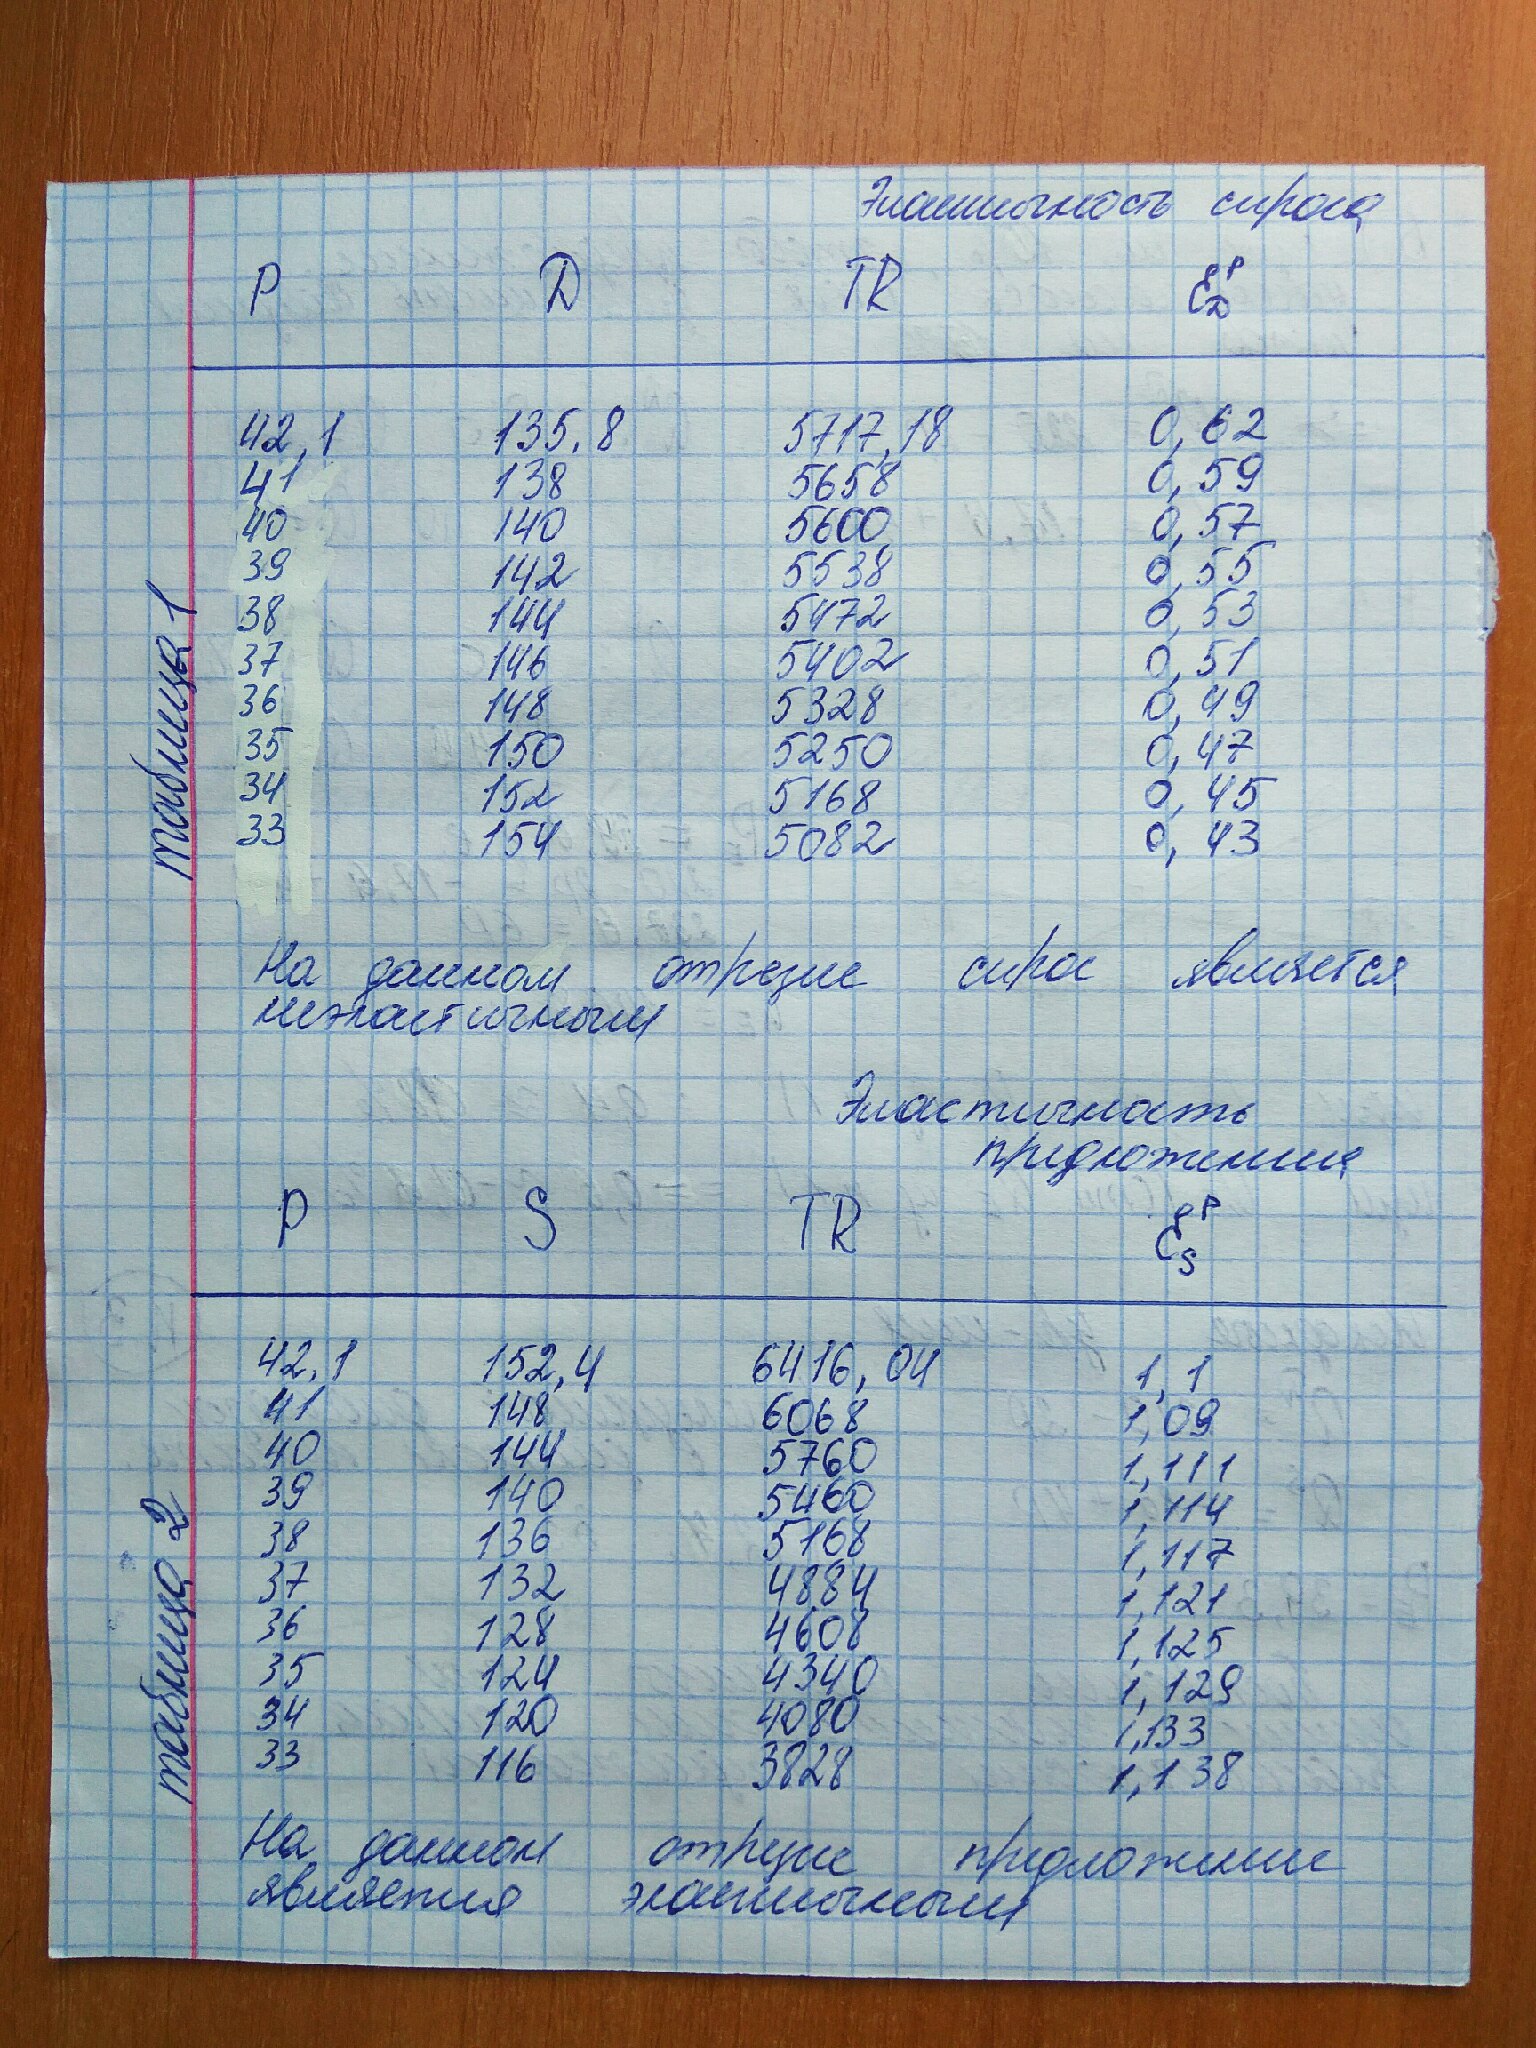 Эластичность спроса
P D TR E^P_D
42,1 135,8 5717,18 0,62
41 138 5658 0,59
40 140 5600 0,57
39 142 5538 0,55
38 144 5472 0,53
37 146 5402 0,51
36 148 5328 0,49
35 150 5250 0,47
34 152 5168 0,45
33 154 5082 0,43
таблица 1
На данном отрезке спрос является
неэластичным
Эластичность
предложения
P S TR E^P_S
42,1 152,4 6416,04 1,1
41 148 6068 1,09
40 144 5760 1,111
39 140 5460 1,114
38 136 5168 1,117
37 132 4884 1,121
36 128 4608 1,125
35 124 4340 1,129
34 120 4080 1,133
33 116 3828 1,138
таблица 2
На данном отрезке предложение
является эластичным